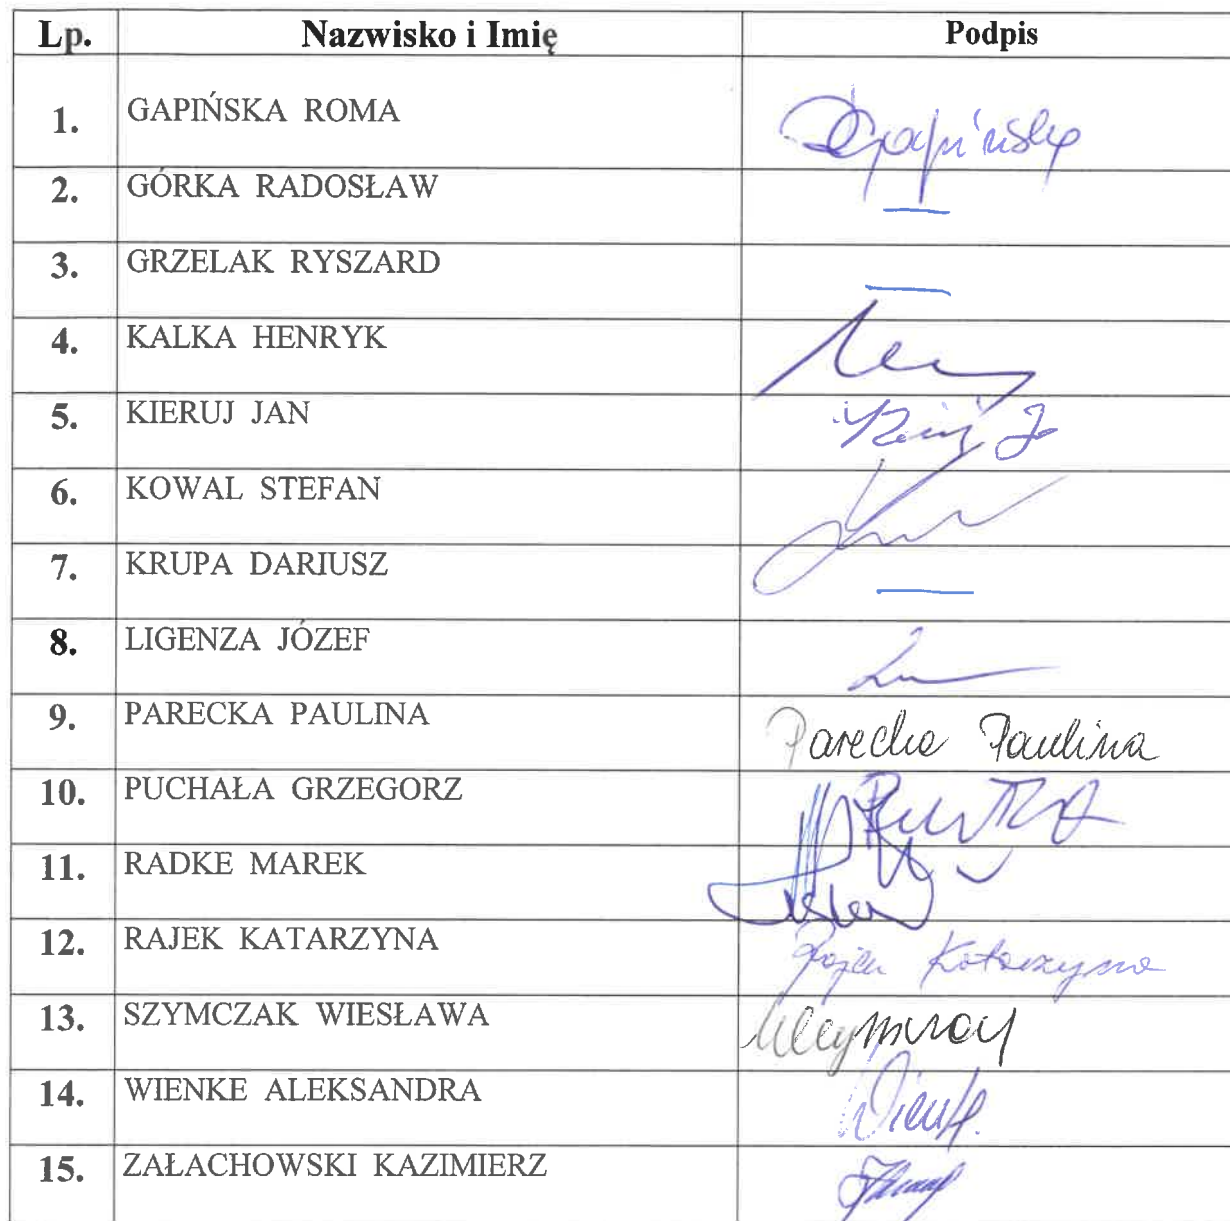 Lp. Nazwisko i Imię Podpis
1. GAPIŃSKA ROMA Gapińska
2. GÓRKA RADOSŁAW —
3. GRZELAK RYSZARD —
4. KALKA HENRYK
5. KIERUJ JAN
6. KOWAL STEFAN
7. KRUPA DARIUSZ —
8. LIGENZA JÓZEF
9. PARECKA PAULINA Parecka Paulina
10. PUCHAŁA GRZEGORZ
11. RADKE MAREK
12. RAJEK KATARZYNA Rajek Katarzyna
13. SZYMCZAK WIESŁAWA
14. WIENKE ALEKSANDRA
15. ZAŁACHOWSKI KAZIMIERZ